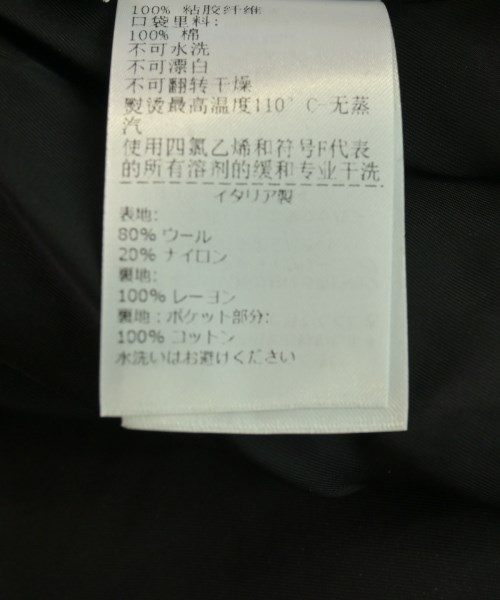 100% 粘胶纤维
口袋里料:
100% 棉
不可水洗
不可漂白
不可翻转干燥
熨烫最高温度110° C-无蒸
汽
使用四氯乙烯和符号F代表
的所有溶剂的缓和专业干洗
イタリア製
表地:
80% ウール
20% ナイロン
裏地:
100% レーヨン
裏地：ポケット部分:
100% コットン
水洗いはお避けください